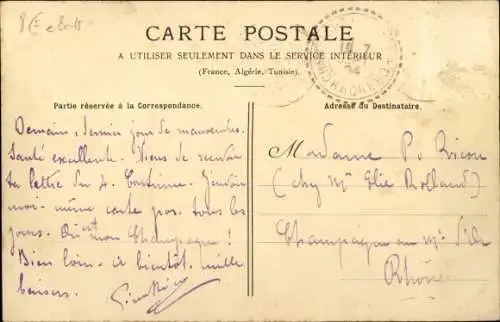 CARTE POSTALE
A UTILISER SEULEMENT DANS LE SERVICE INTÉRIEUR
(France, Algérie, Tunisie).
Partie réservée à la Correspondance.
Adresse du Destinataire.
Demain, dernier jour de manœuvres.
Santé excellente. Viens de recevoir
ta lettre du 4. Continue. J'envoie
moi-même carte pos. tous les
jours. Où est mon Champagne !
Bien loin. à bientôt. mille
baisers.
Madame P. Ricou
(chez Mr Elie Rolland)
Champagne au Mt d'Or
Rhône